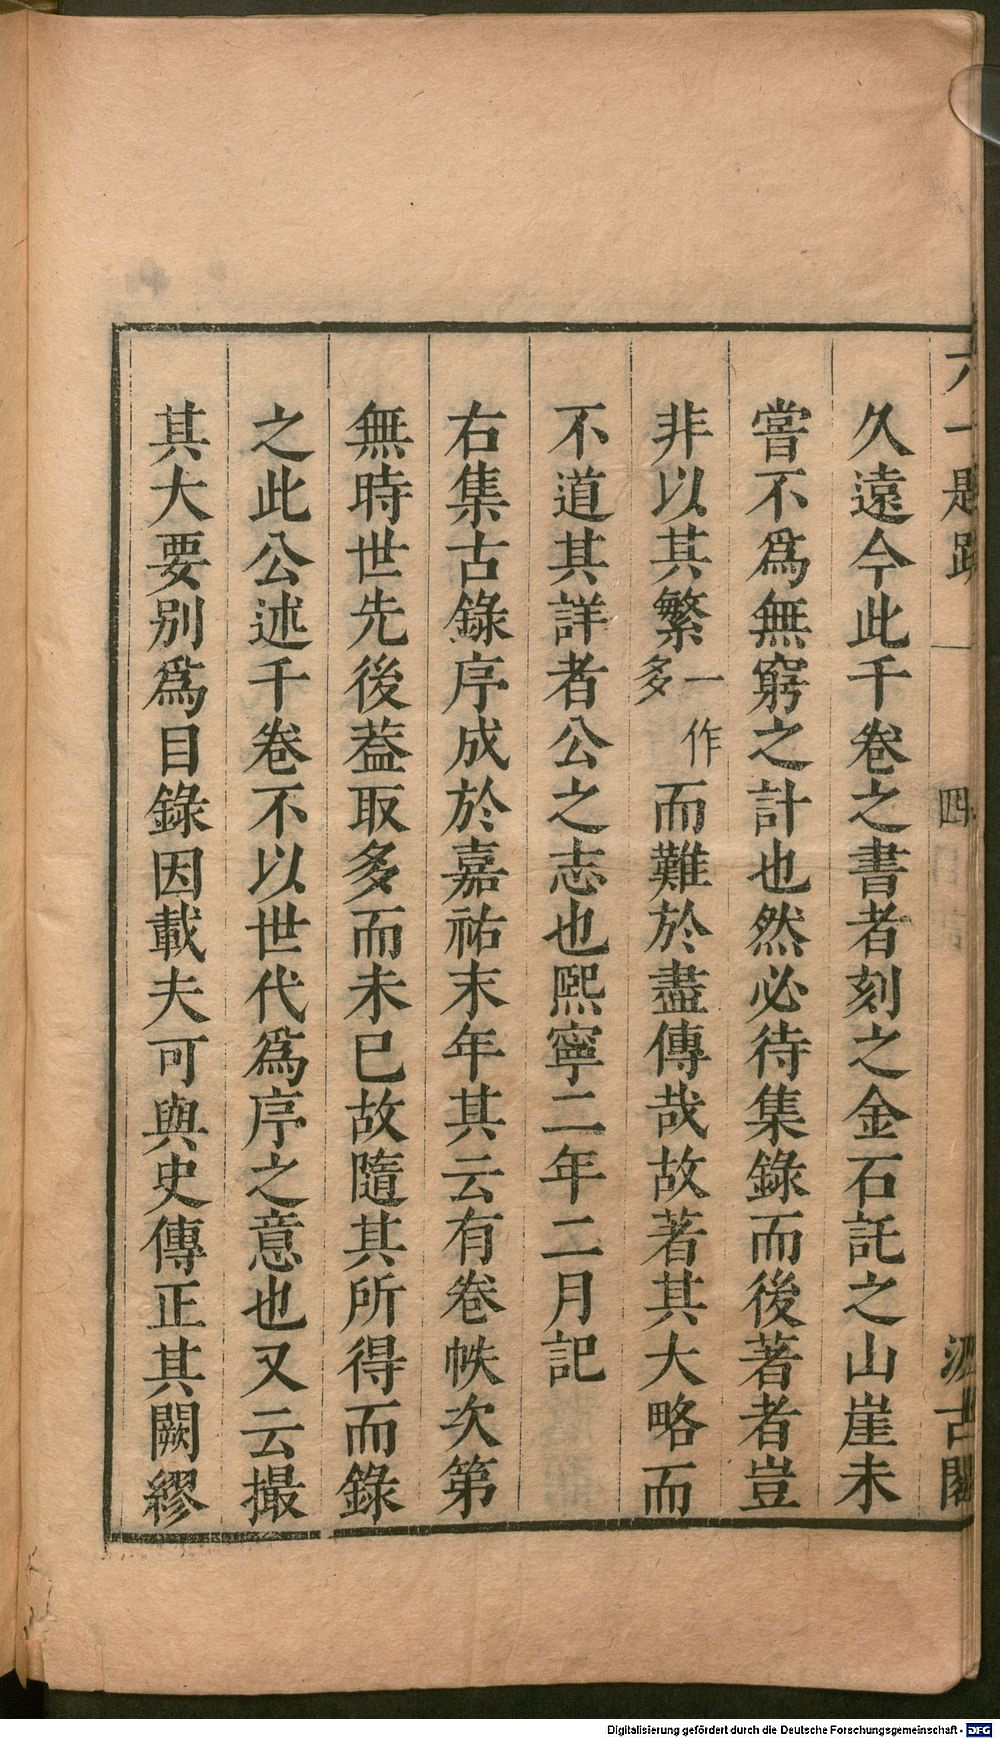 六一題跋 四 汲古閣
久遠今此千卷之書者刻之金石託之山崖未
嘗不爲無窮之計也然必待集錄而後著者豈
非以其繁一作多而難於盡傳哉故著其大略而
不道其詳者公之志也熙寧二年二月記
右集古錄序成於嘉祐末年其云有卷帙次第
無時世先後葢取多而未已故隨其所得而錄
之此公述千卷不以世代爲序之意也又云撮
其大要別爲目錄因載夫可與史傳正其闕繆
Digitalisierung gefördert durch die Deutsche Forschungsgemeinschaft - DFG